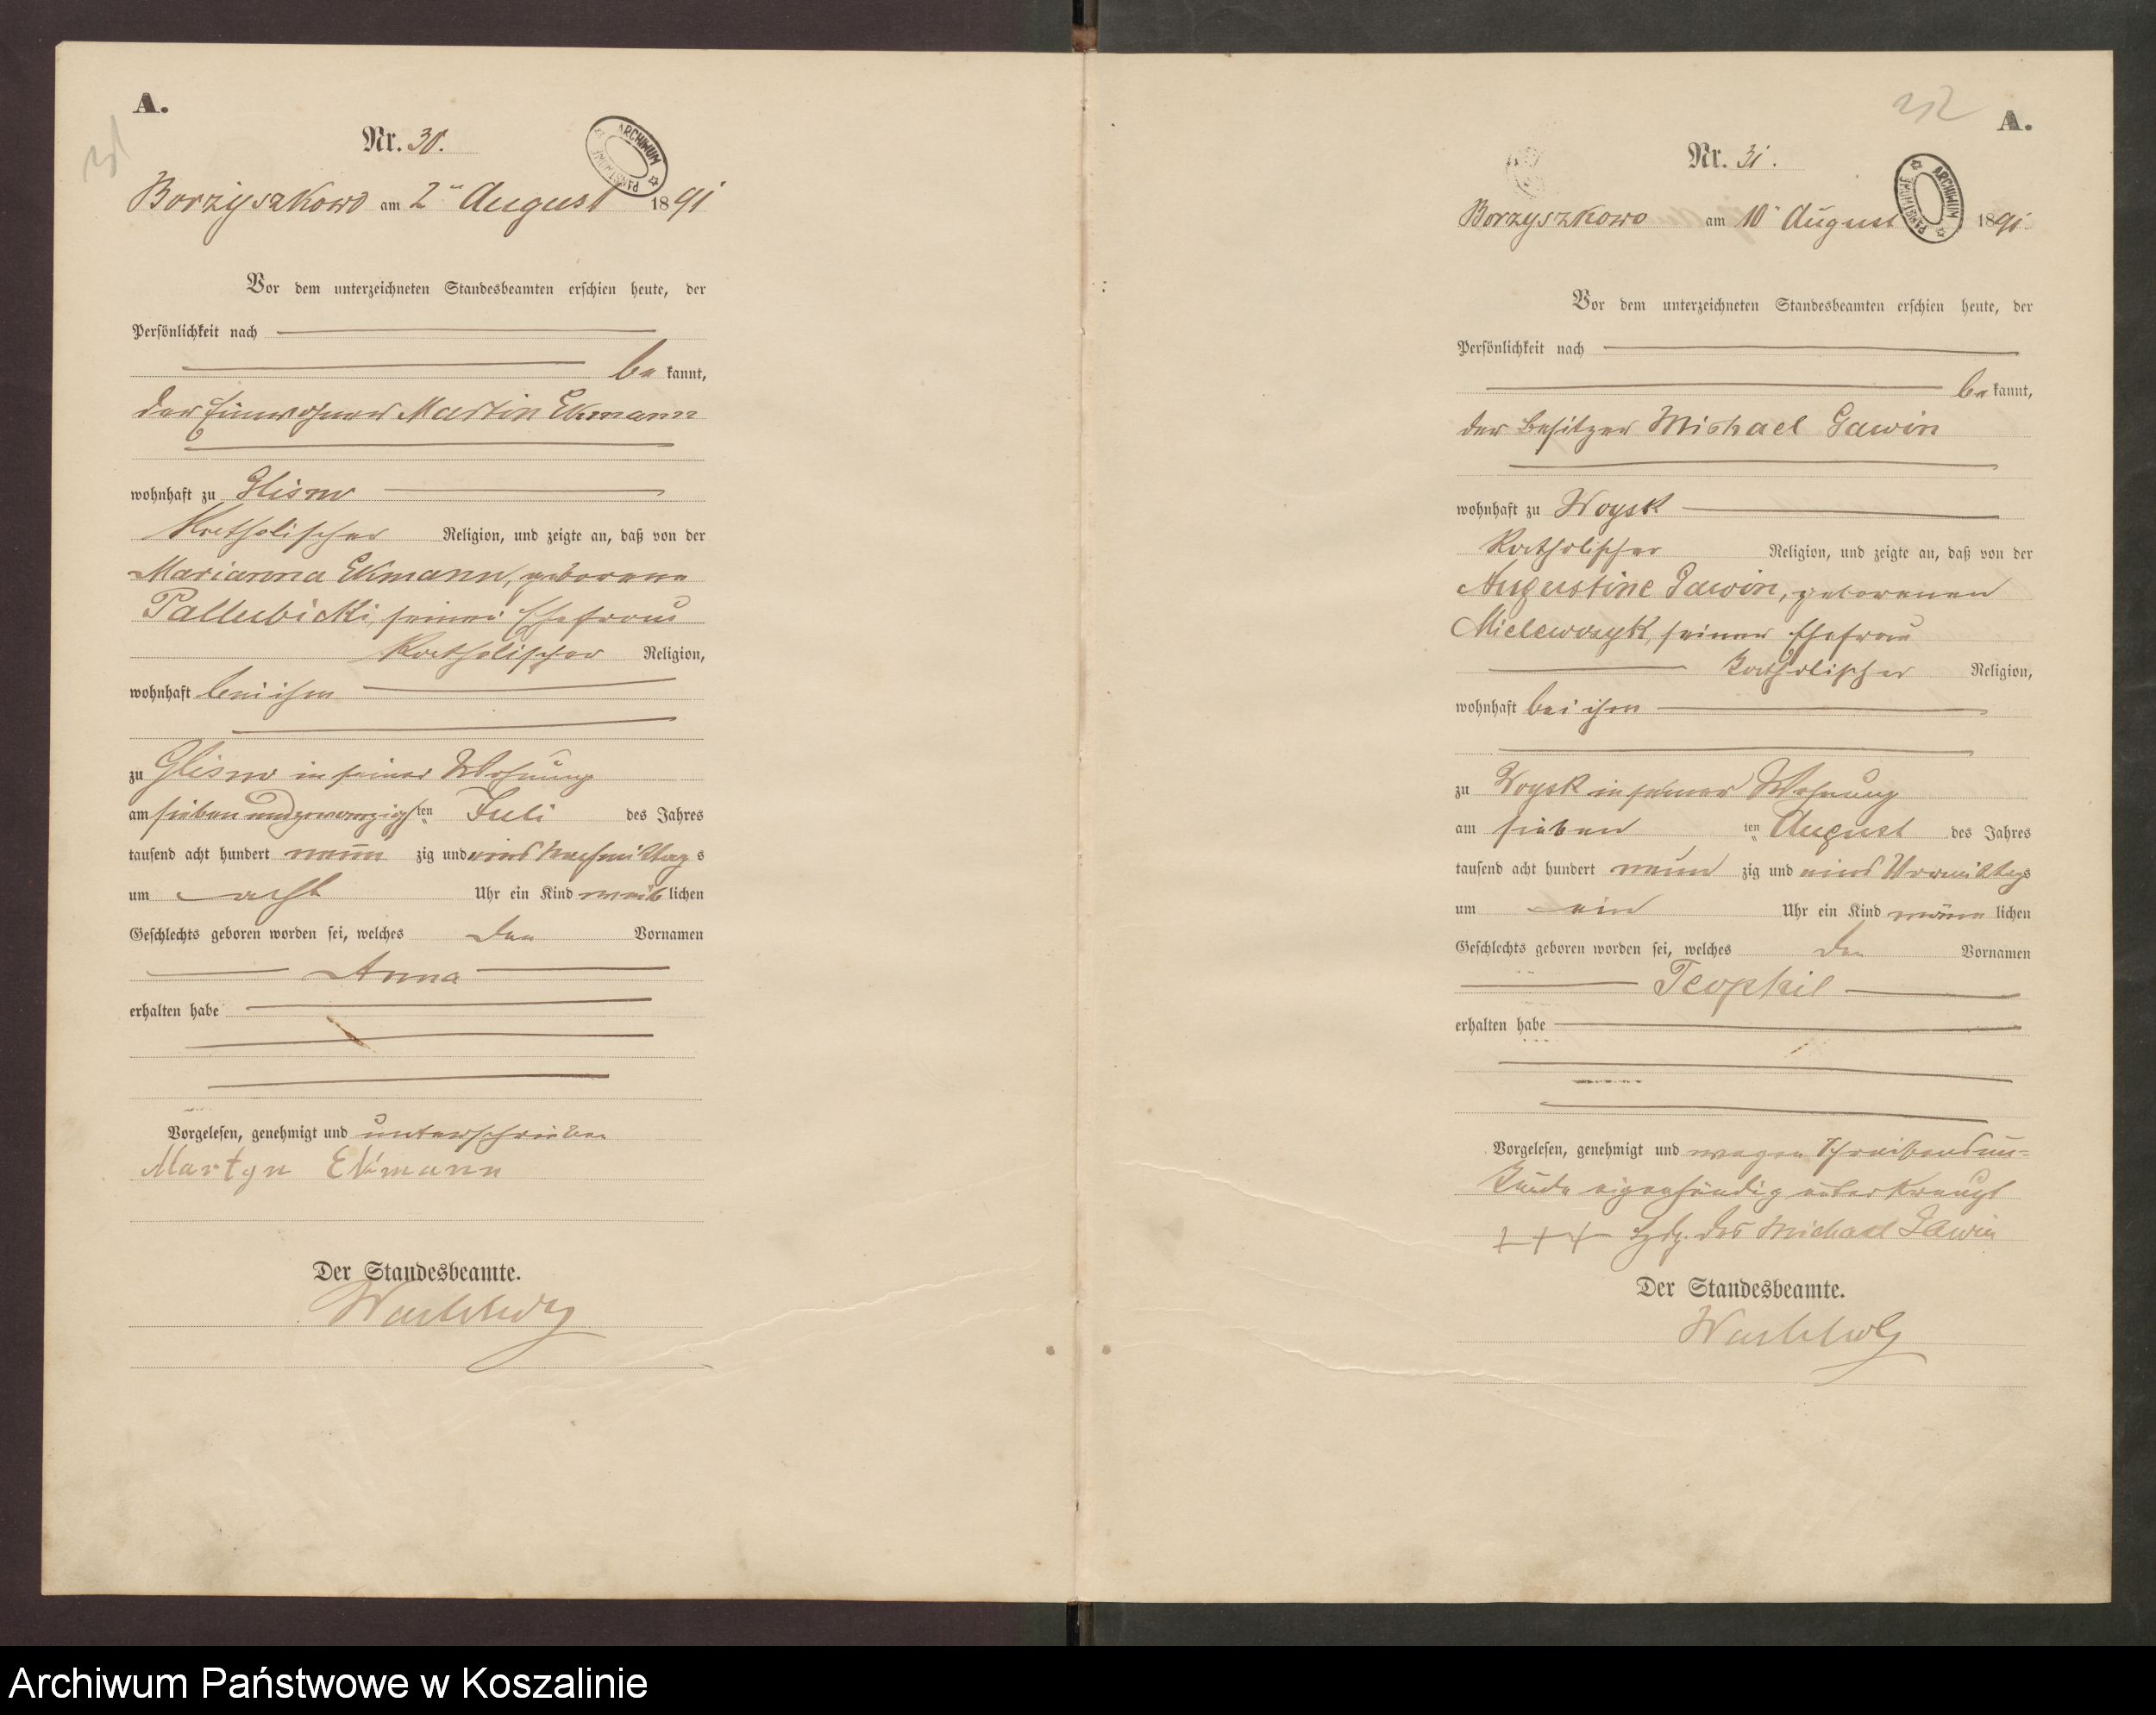 A.
Nr. 30.
ARCHIWUM PAŃSTWOWE
Borzyszkowo am 2ten August 1891
Vor dem unterzeichneten Standesbeamten erschien heute, der
Persönlichkeit nach
be kannt,
der Einwohner Martin Ekmann
wohnhaft zu Glisno
Katholischer Religion, und zeigte an, daß von der
Marianna Ekmann, geborene
Pallubicki, seiner Ehefrau
Katholischer Religion,
wohnhaft bei ihm
zu Glisno in seiner Wohnung
am sieben und zwanzigsten Juli des Jahres
tausend acht hundert neun zig und eins Nachmittags
um acht Uhr ein Kind weib lichen
Geschlechts geboren worden sei, welches den Vornamen
Anna
erhalten habe
Vorgelesen, genehmigt und unterschrieben
Martyn Ekmann
Der Standesbeamte.
A.
Nr. 31.
ARCHIWUM PAŃSTWOWE
Borzyszkowo am 10 August 1891
Vor dem unterzeichneten Standesbeamten erschien heute, der
Persönlichkeit nach
be kannt,
der Besitzer Michael Gawin
wohnhaft zu Woysk
Katholischer Religion, und zeigte an, daß von der
Augustine Gawin, geborenen
Mielewczyk, seiner Ehefrau
Katholischer Religion,
wohnhaft bei ihm
zu Woysk in seiner Wohnung
am sieben ten August des Jahres
tausend acht hundert neun zig und eins Vormittags
um ein Uhr ein Kind männ lichen
Geschlechts geboren worden sei, welches den Vornamen
Teophil
erhalten habe
Vorgelesen, genehmigt und wegen Schreibensun-
kunde eigenhändig unterkreuzt
+++ Hdz. des Michael Gawin
Der Standesbeamte.
Archiwum Państwowe w Koszalinie